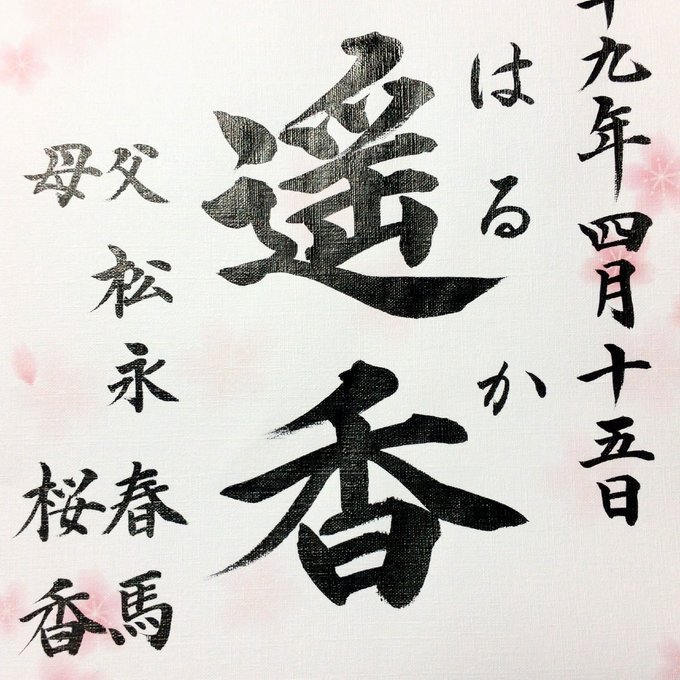 十九年四月十五日
はるか
遥香
父 松永 春馬
母 桜香